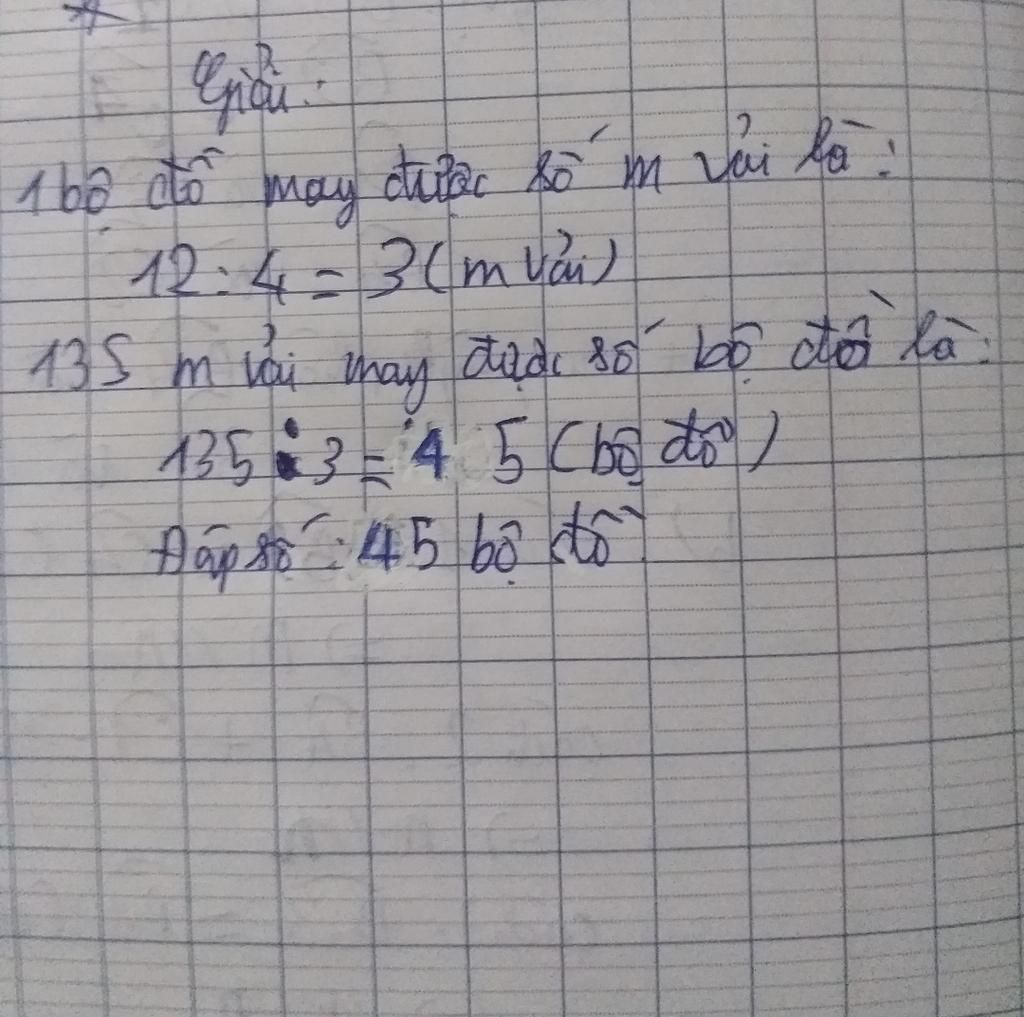 Giải:
1 bộ đồ may được số m vải là:
12 : 4 = 3 (m vải)
135 m vải may được số bộ đồ là:
135 : 3 = 45 (bộ đồ)
Đáp số: 45 bộ đồ